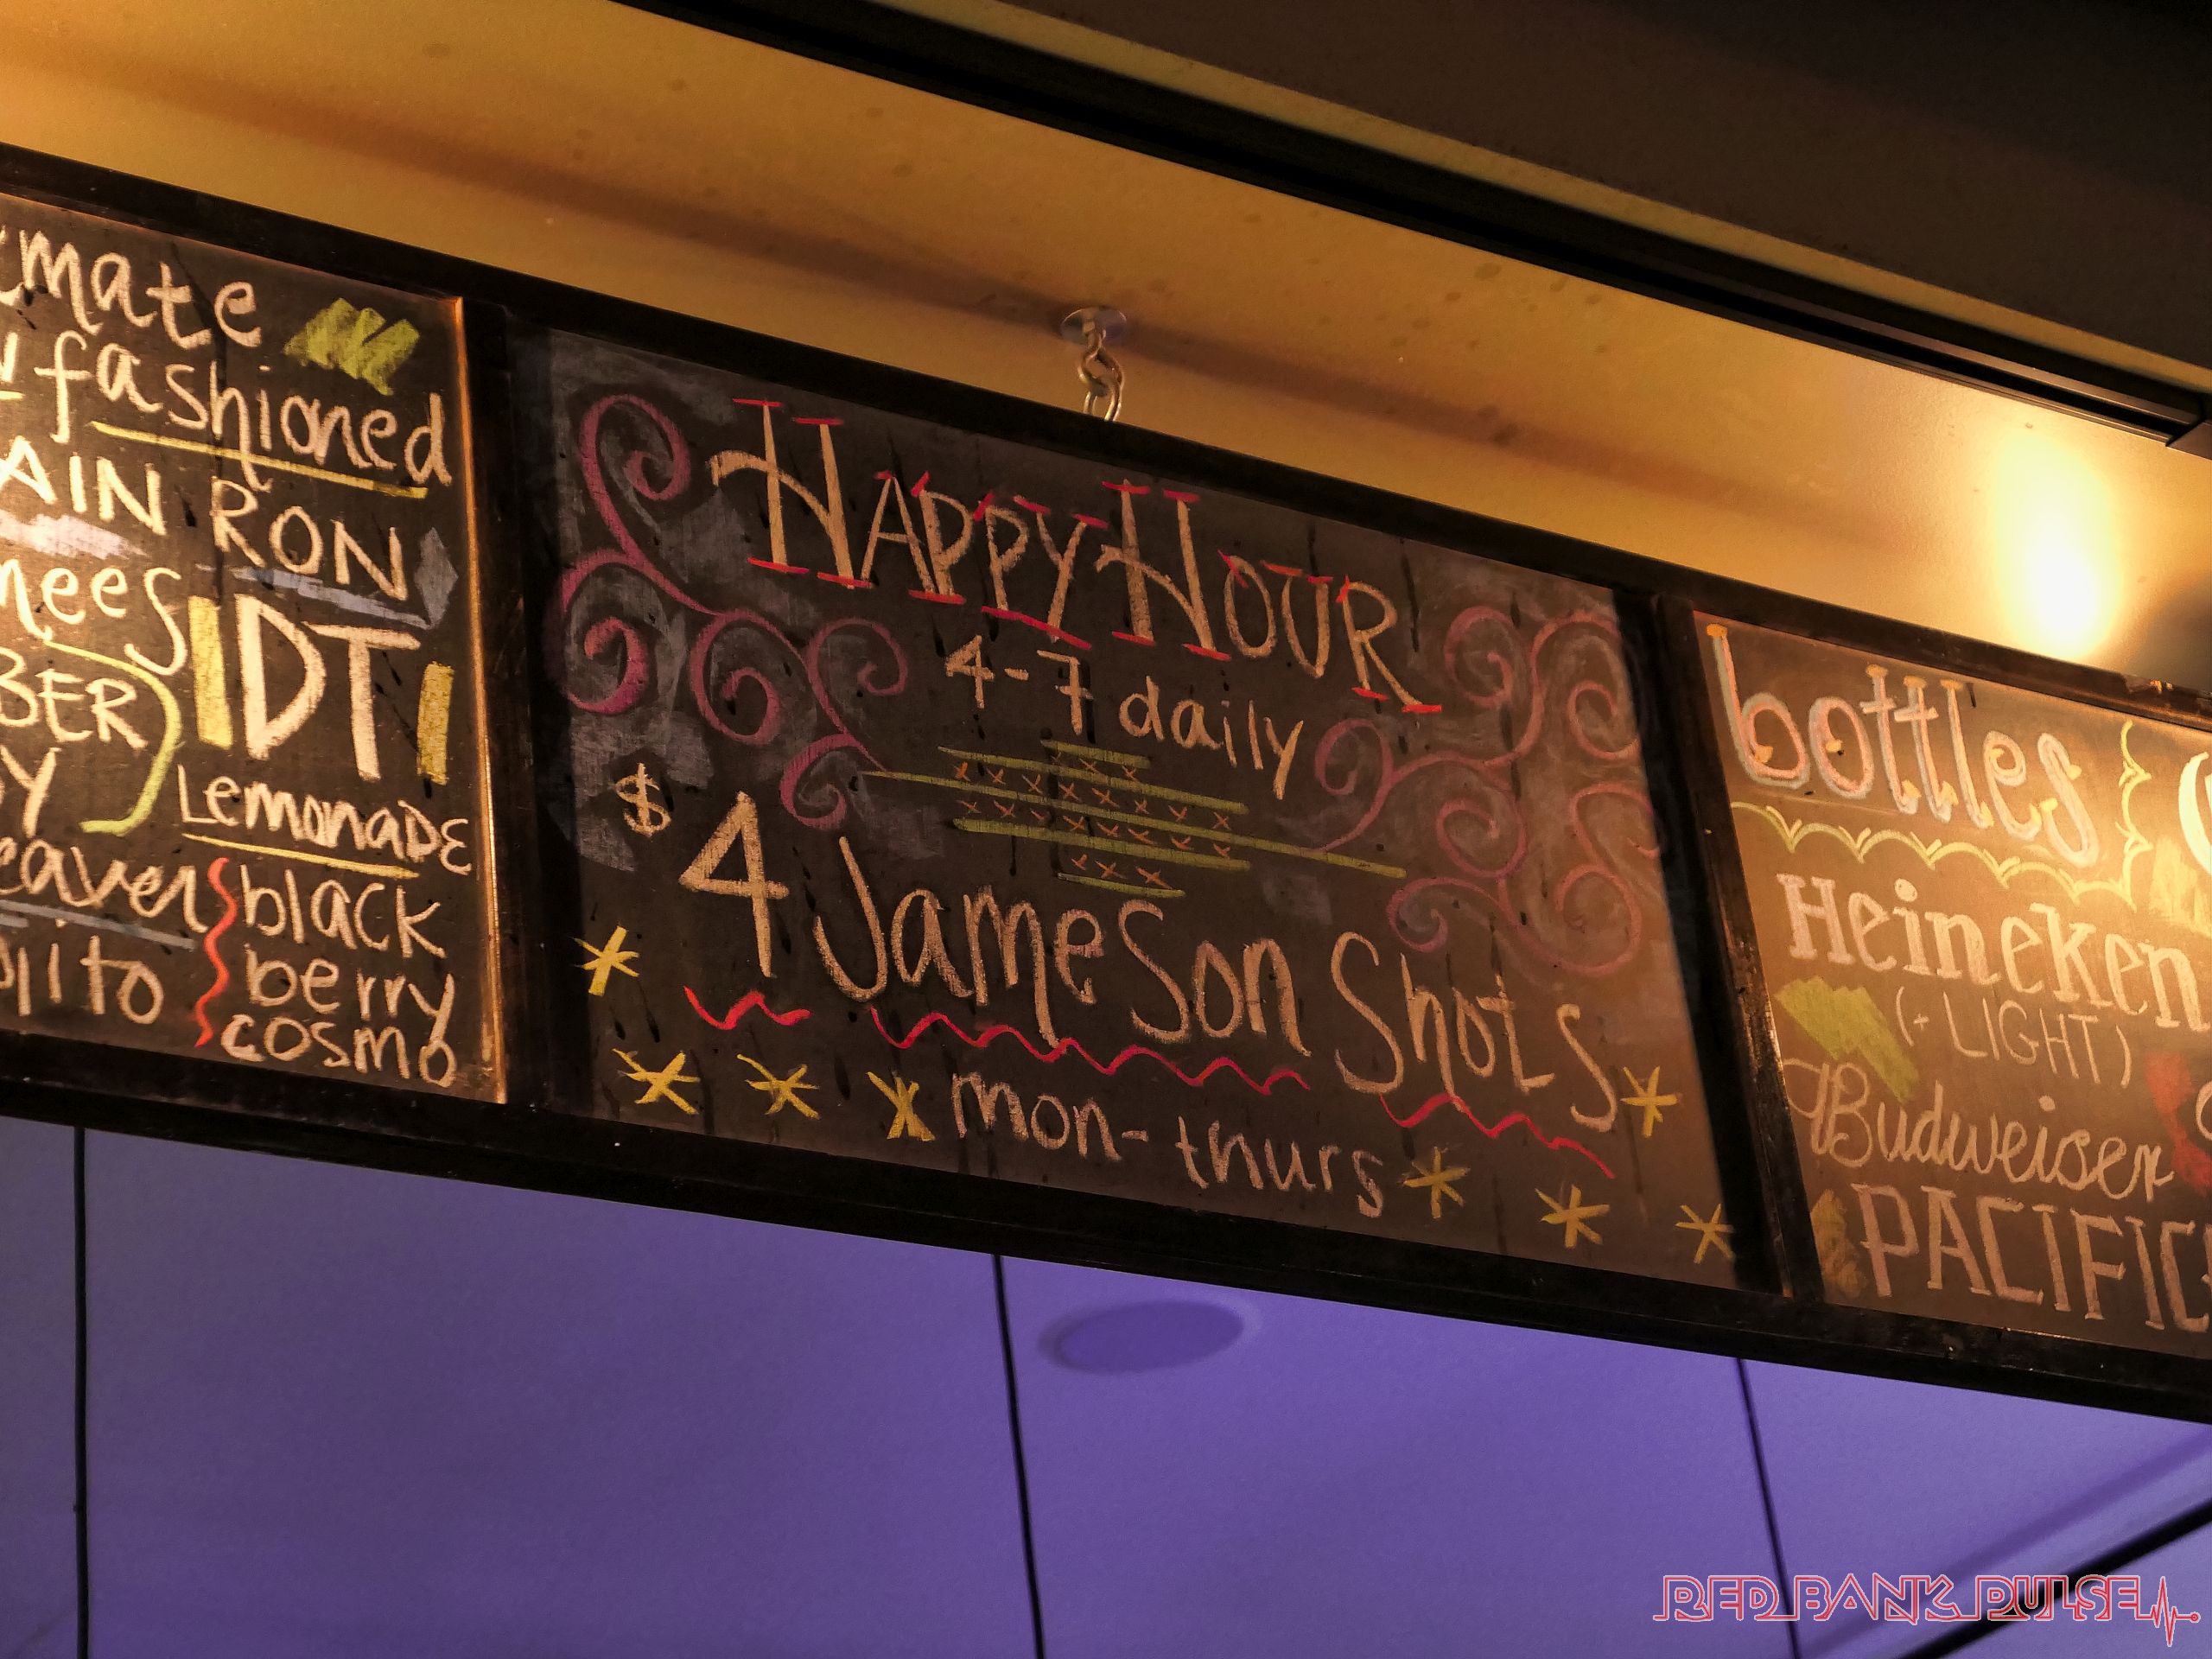 mate
fashioned
AIN RON
nees
BER
IDTI
Lemonade
eaver
black
berry
cosmo
ojito
HAPPY HOUR
4-7 daily
$4 Jameson Shots
mon-thurs
bottles
Heineken
(+ LIGHT)
Budweiser
PACIFIC
RED BANK PULSE